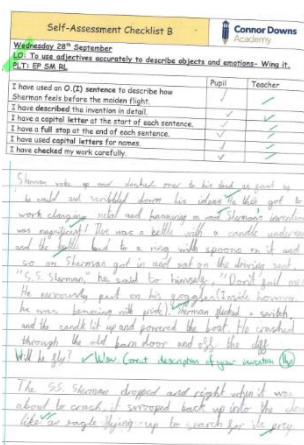 Self-Assessment Checklist B
Connor Downs
Academy
Wednesday 28th September
LO: To use adjectives accurately to describe objects and emotions- Wing it.
PLT: EP SM RL
Pupil Teacher
I have used an O.(I) sentence to describe how
Sherman feels before the maiden flight.
I have described the invention in detail.
I have a capital letter at the start of each sentence.
I have a full stop at the end of each sentence.
I have used capital letters for names.
I have checked my work carefully.
Sherman woke up and dashed over to his desk as fast as
he could and scribbled down his ideas. He then got to
work changing metal and hammering in nails. Sherman's invention
was magnificent! There was a kettle with a candle underneath
and the kettle lead to a ring with spoons on it and
so on. Sherman got in and sat on the driving seat.
"S.S. Sherman," he said to himself, "Don't fail me."
He nervously put on his goggles (inside however,
he was humming with pride). Sherman flicked a switch,
and the candle lit up and powered the boat. He crashed
through the old barn door and off the cliff.
Will he fly? Wow. Great description of your invention
The S.S. Sherman dropped and right when it was
about to crash, it swooped back up into the
like an eagle flying up to search for its prey.